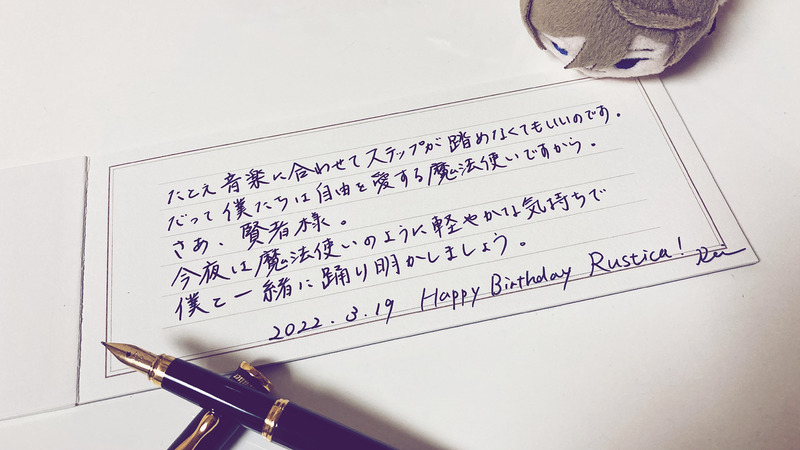 たとえ音楽に合わせてステップが踏めなくてもいいのです。
だって僕たちは自由を愛する魔法使いですから。
さあ、賢者様。
今夜は魔法使いのように軽やかな気持ちで
僕と一緒に踊り明かしましょう。
2022.3.19 Happy Birthday Rustica!